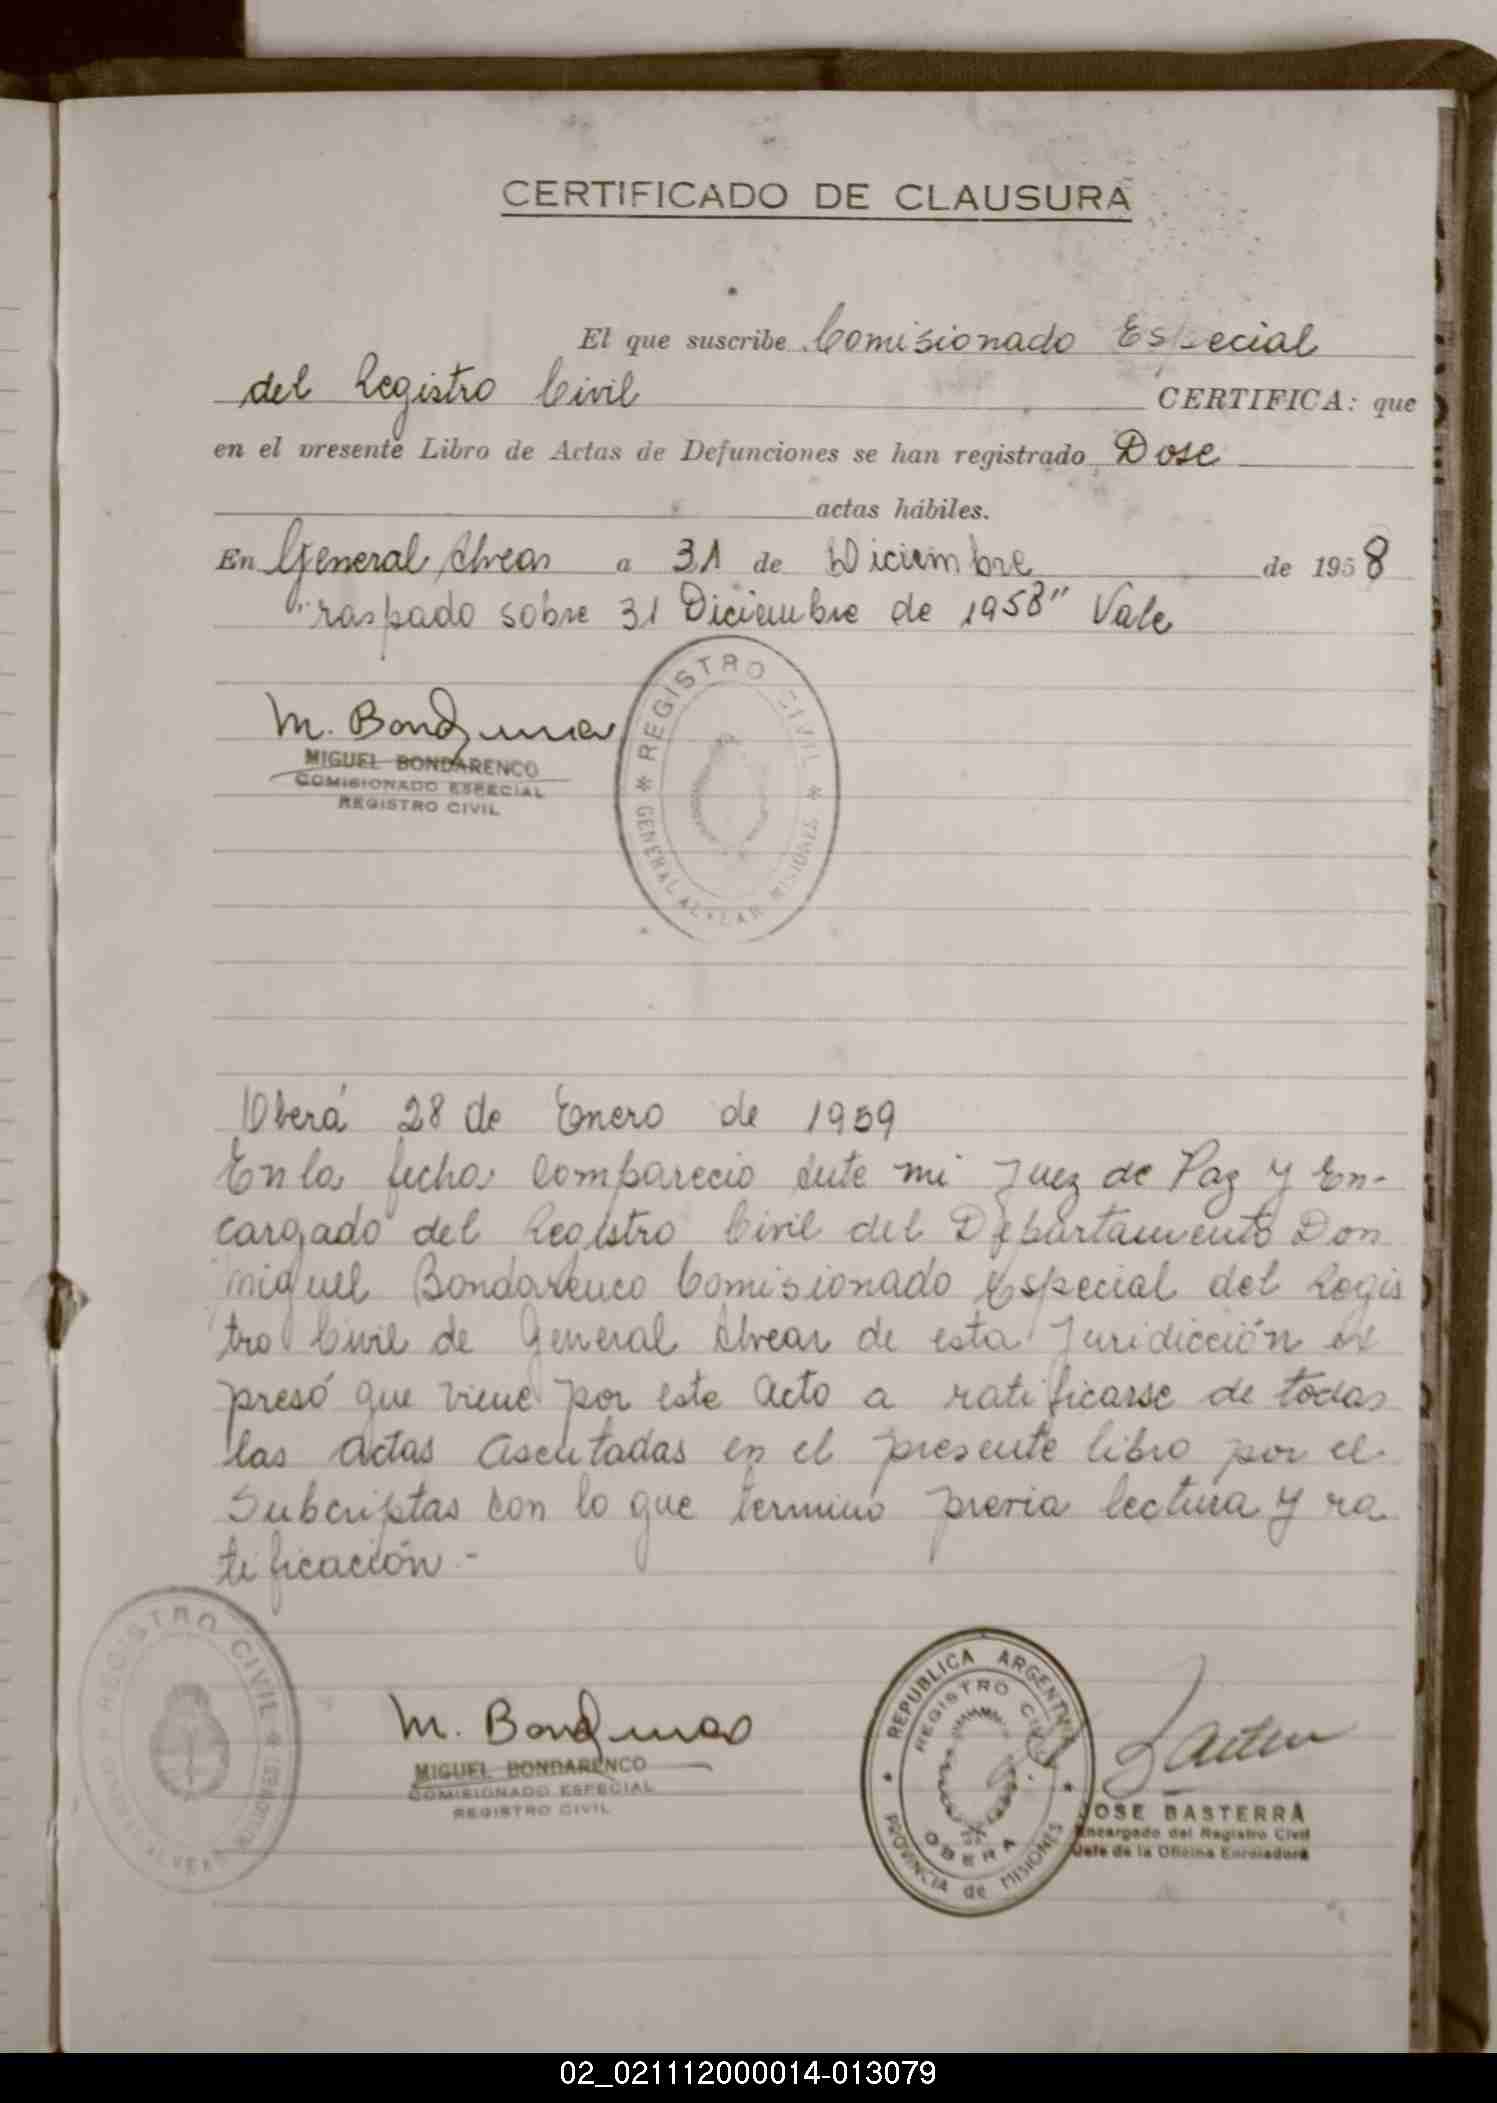 CERTIFICADO DE CLAUSURA
El que suscribe Comisionado Especial
del Registro Civil CERTIFICA: que
en el presente Libro de Actas de Defunciones se han registrado Dose
actas hábiles.
En General Alvear a 31 de Diciembre de 1958
"raspado sobre 31 Diciembre de 1958" Vale
M. Bondarenco
MIGUEL BONDARENCO
COMISIONADO ESPECIAL
REGISTRO CIVIL
REGISTRO CIVIL
GENERAL ALVEAR MISIONES
Oberá 28 de Enero de 1959
En la fecha comparecio ante mi Juez de Paz y En-
cargado del Registro Civil del Departamento Don
Miguel Bondarenco Comisionado Especial del Regis
tro Civil de General Alvear de esta Juridicción ex
presó que viene por este Acto a ratificarse de todas
las actas asentadas en el presente libro por el
Subcriptas con lo que terminó previa lectura y ra
tificación.-
REGISTRO CIVIL
GENERAL ALVEAR MISIONES
M. Bondarenco
MIGUEL BONDARENCO
COMISIONADO ESPECIAL
REGISTRO CIVIL
REPUBLICA ARGENTINA
REGISTRO CIVIL
OBERA
PROVINCIA de MISIONES
JOSE BASTERRA
Encargado del Registro Civil
Jefe de la Oficina Enroladora
02_021112000014-013079